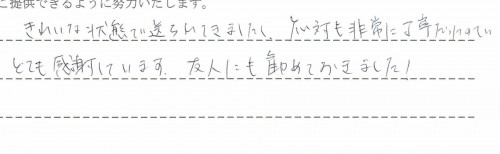 ご提供できるように努力いたします。
きれいな状態で送られてきましたし、応対も非常に丁寧だったので
とても感謝しています。友人にも勧めておきました!